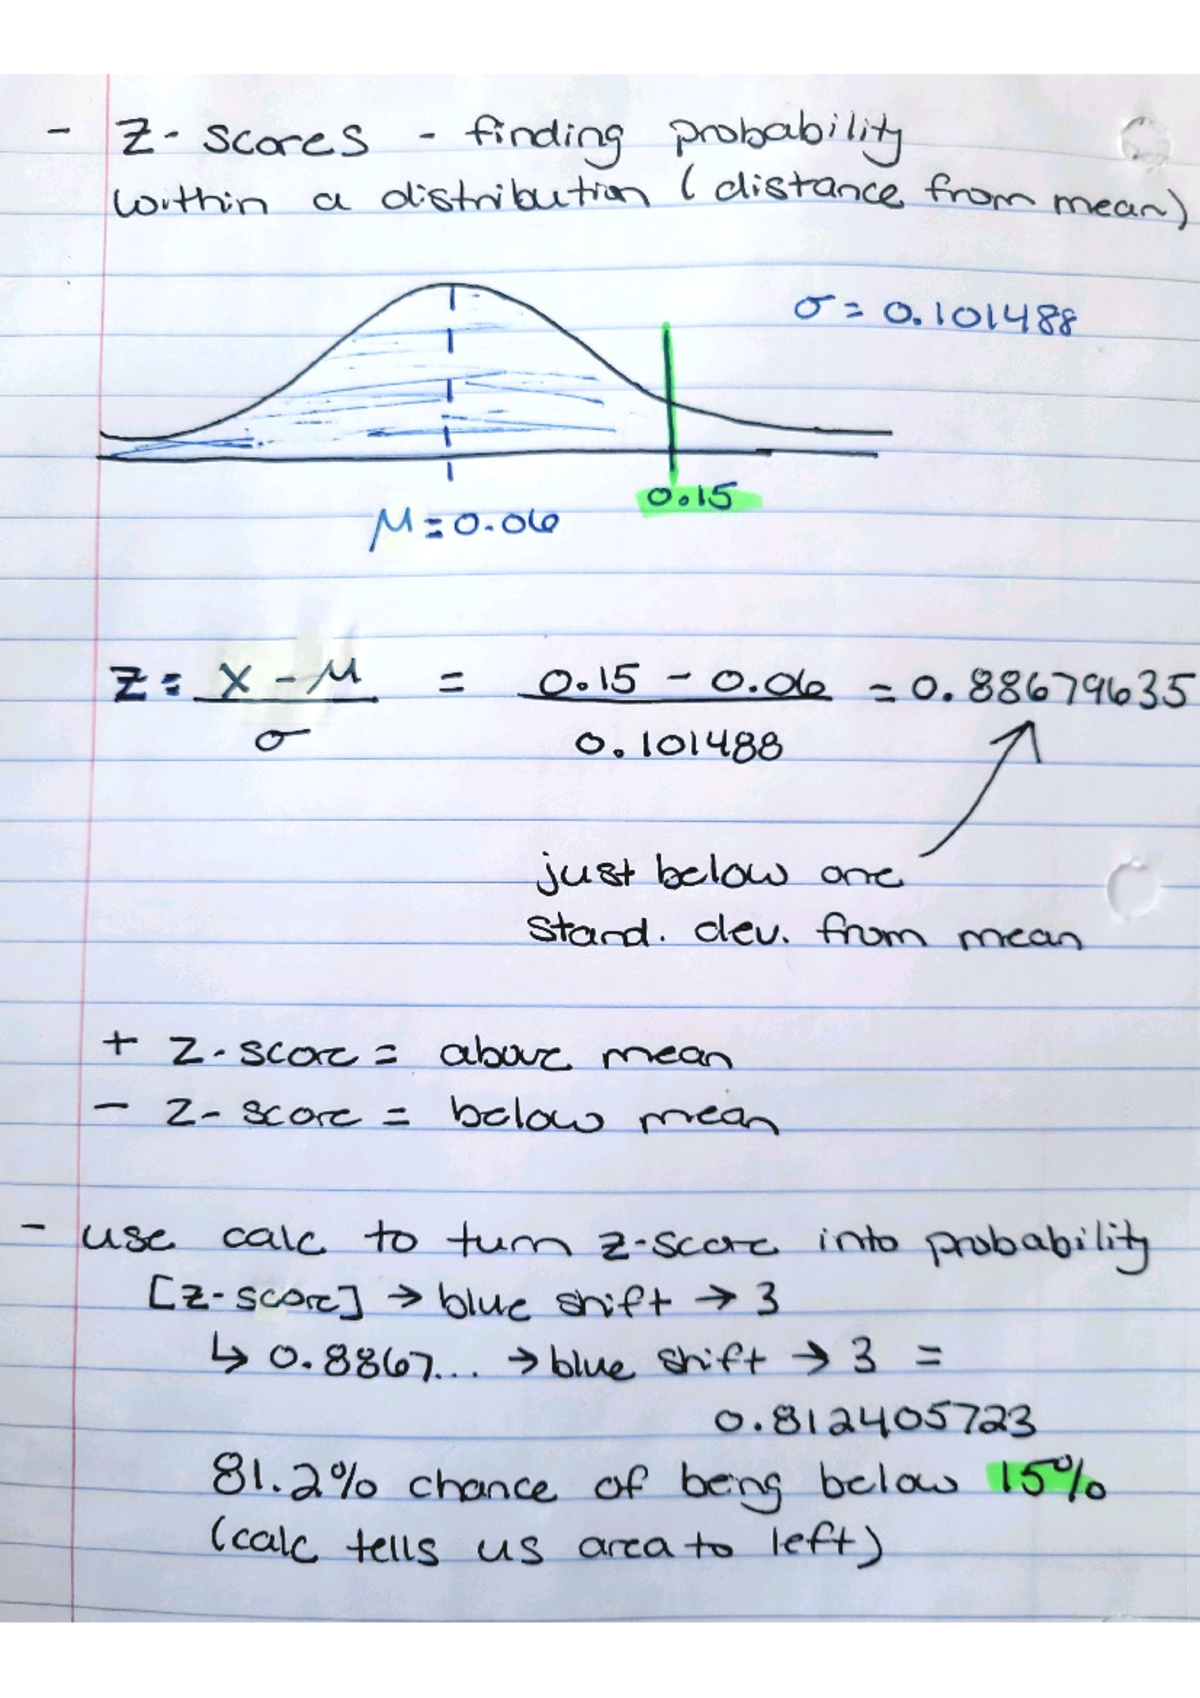 - Z-scores - finding probability
within a distribution (distance from mean)
σ = 0.101488
0.15
μ = 0.06
Z = X - μ / σ = 0.15 - 0.06 / 0.101488 = 0.88679635
just below one
stand. dev. from mean
+ z-score = above mean
- z-score = below mean
- use calc to turn z-score into probability
[z-score] → blue shift → 3
↳ 0.8867... → blue shift → 3 =
0.812405723
81.2% chance of being below 15%
(calc tells us area to left)